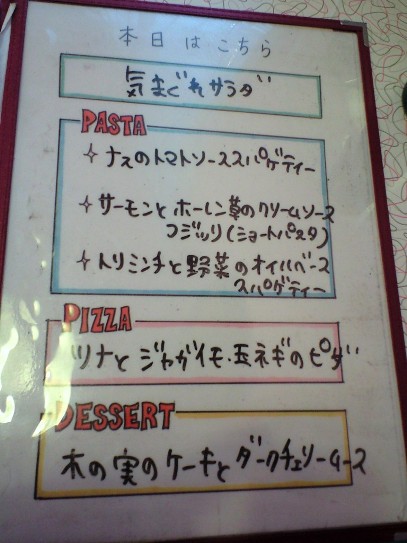 本日はこちら
気まぐれサラダ
PASTA
ナスのトマトソーススパゲティー
サーモンとホーレン草のクリームソース
コジッリ(ショートパスタ)
トリミンチと野菜のオイルベース
スパゲティー
PIZZA
ツナとジャガイモ、玉ネギのピザ
DESSERT
木の実のケーキとダークチェリームース